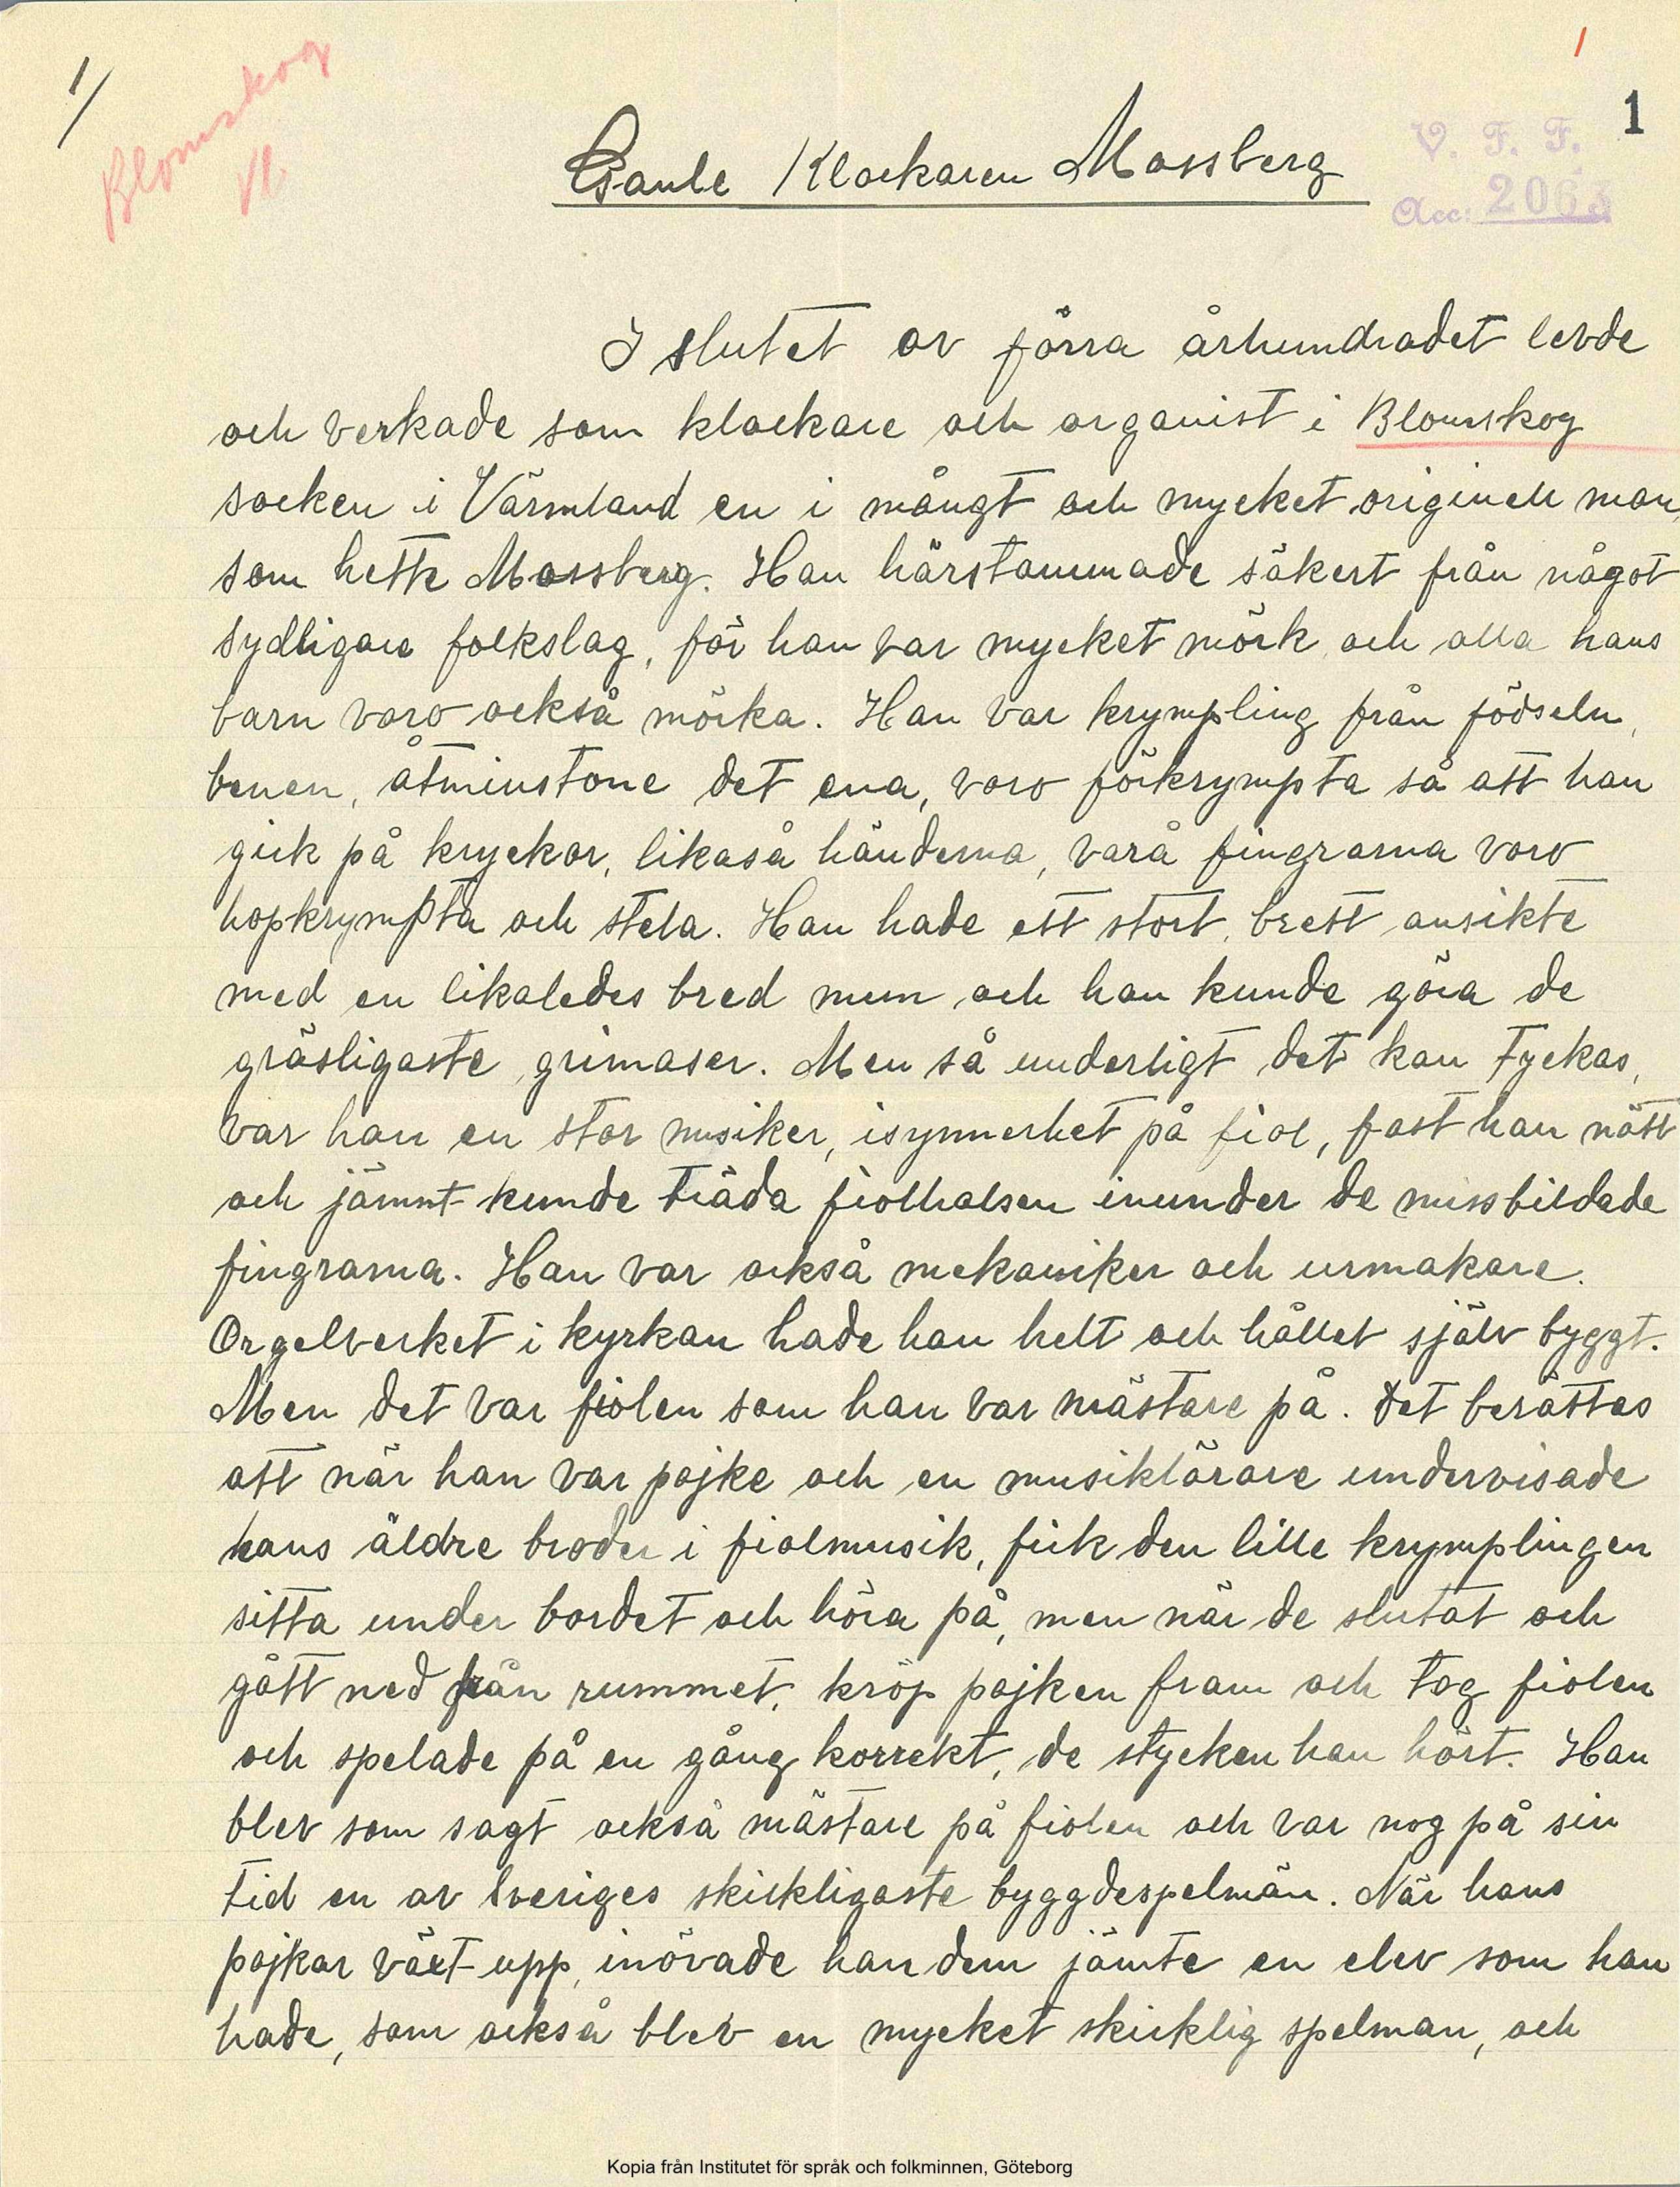 1/
Blomskog
Vl.
1
1
V. F. F.
Acc: 2063
Gamle Klockaren Mossberg
I slutet av förra århundradet levde
och verkade som klockare och organist i Blomskog
socken i Värmland en i mångt och mycket originell man
som hette Mossberg. Han härstammade säkert från något
sydligare folkslag, för han var mycket mörk och alla hans
barn voro också mörka. Han var krympling från födseln,
benen, åtminstone det ena, voro förkrympta så att han
gick på kryckor, likaså händerna, varå fingrarna voro
hopkrympta och stela. Han hade ett stort, brett ansikte
med en likaledes bred mun och han kunde göra de
gräsligaste grimaser. Men så underligt det kan tyckas,
var han en stor musiker, isynnerhet på fiol, fast han nätt
och jämnt kunde träda fiolhalsen inunder de missbildade
fingrarna. Han var också mekaniker och urmakare.
Orgelverket i kyrkan hade han helt och hållet själv byggt.
Men det var fiolen som han var mästare på. Det berättas
att när han var pojke och en musiklärare undervisade
hans äldre broder i fiolmusik, fick den lille krymplingen
sitta under bordet och höra på, men när de slutat och
gått ned från rummet, kröp pojken fram och tog fiolen
och spelade på en gång korrekt, de stycken han hört. Han
blev som sagt också mästare på fiolen och var nog på sin
tid en av Sveriges skickligaste byggdespelmän. När hans
pojkar växt upp, inövade han dem jämte en elev som han
hade, som också blev en mycket skicklig spelman, och
Kopia från Institutet för språk och folkminnen, Göteborg